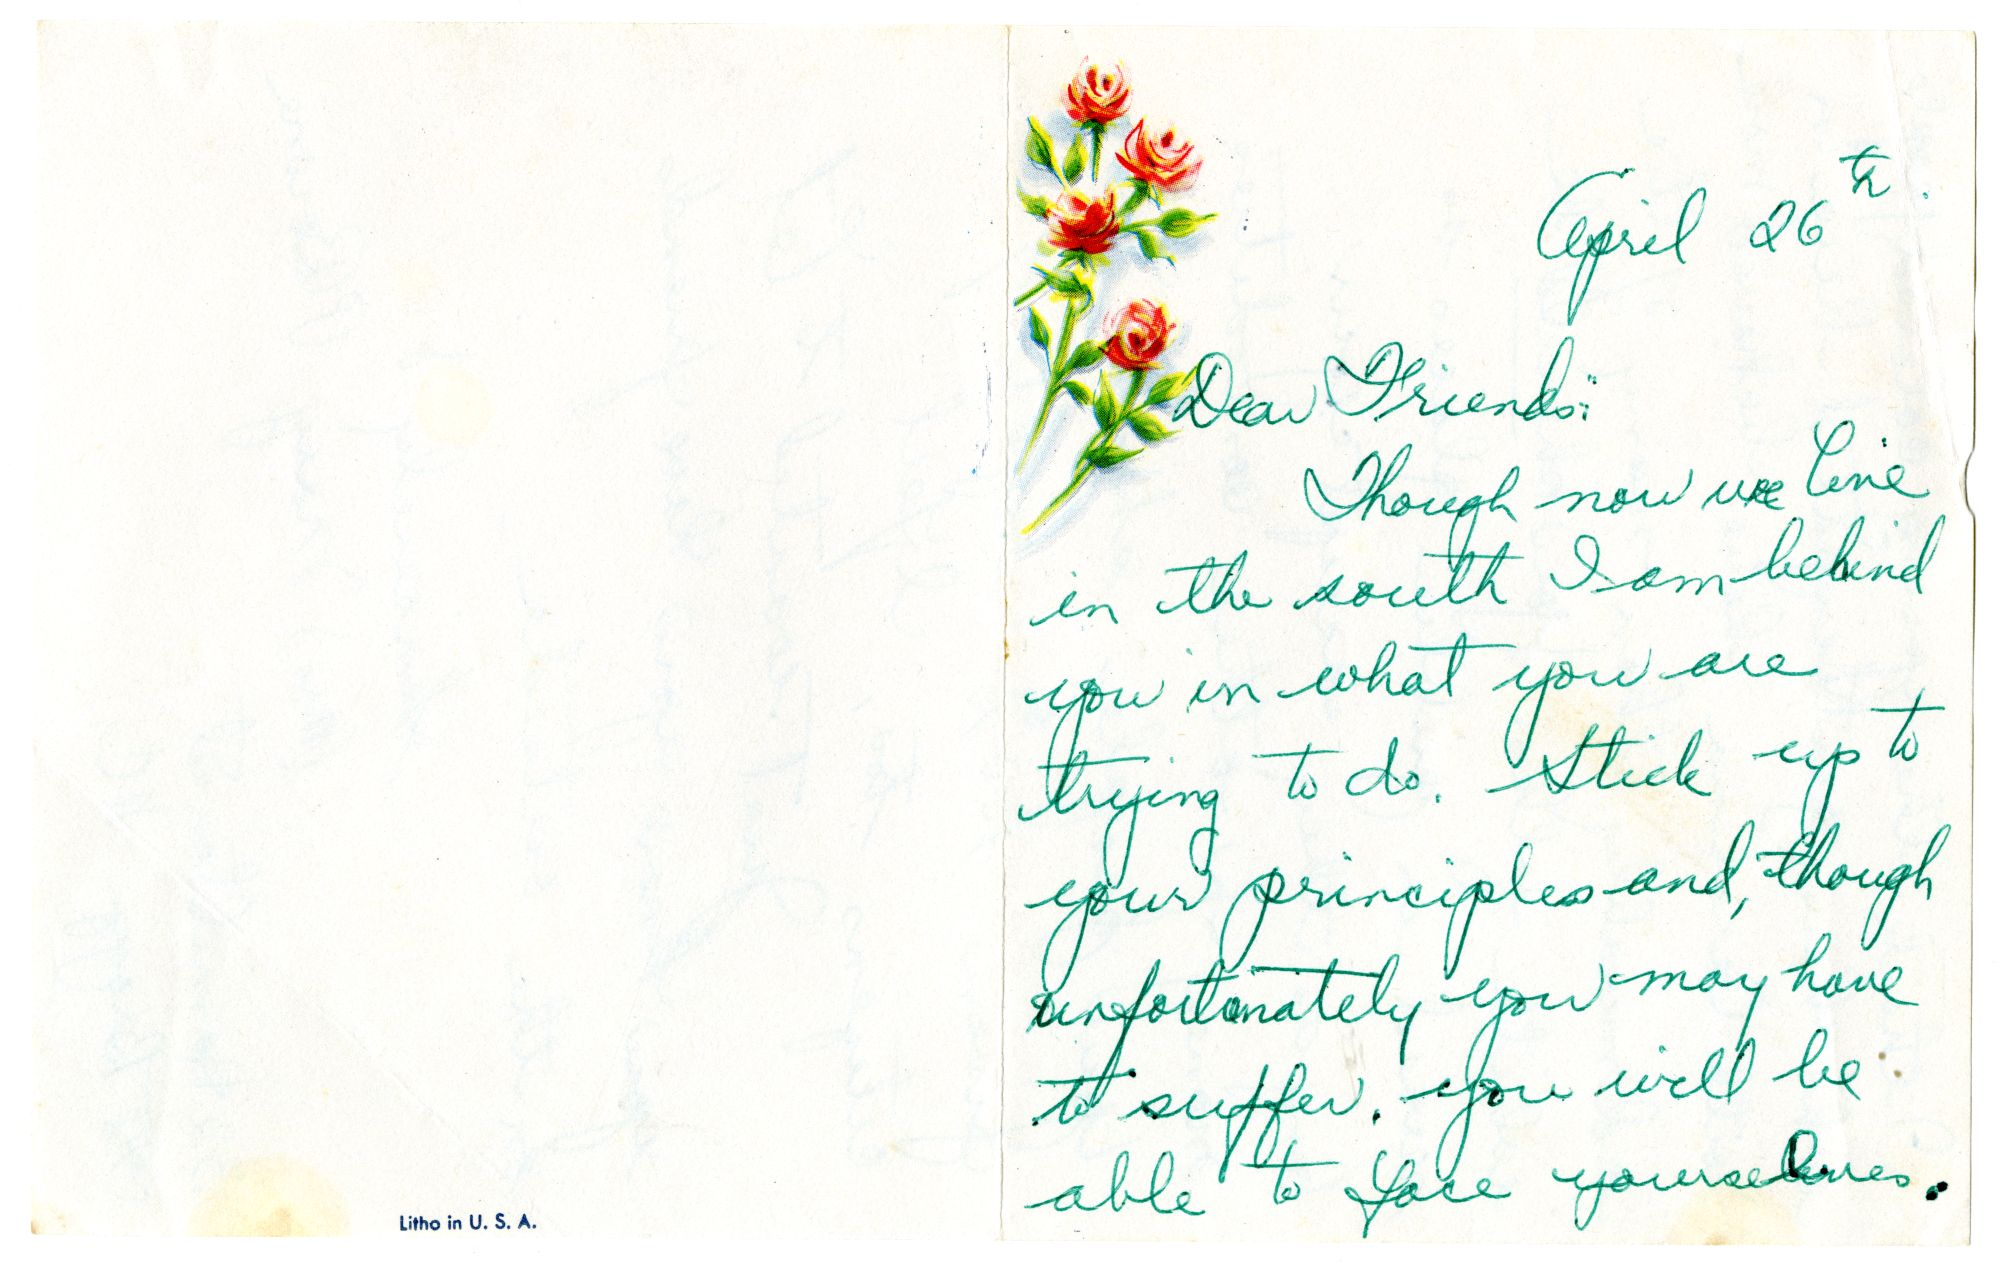 April 26th.
Dear Friends:
Though now we live
in the south I am behind
you in what you are
trying to do. Stick up to
your principles and, though
unfortunately you may have
to suffer, you will be
able to face yourselves.
Litho in U. S. A.